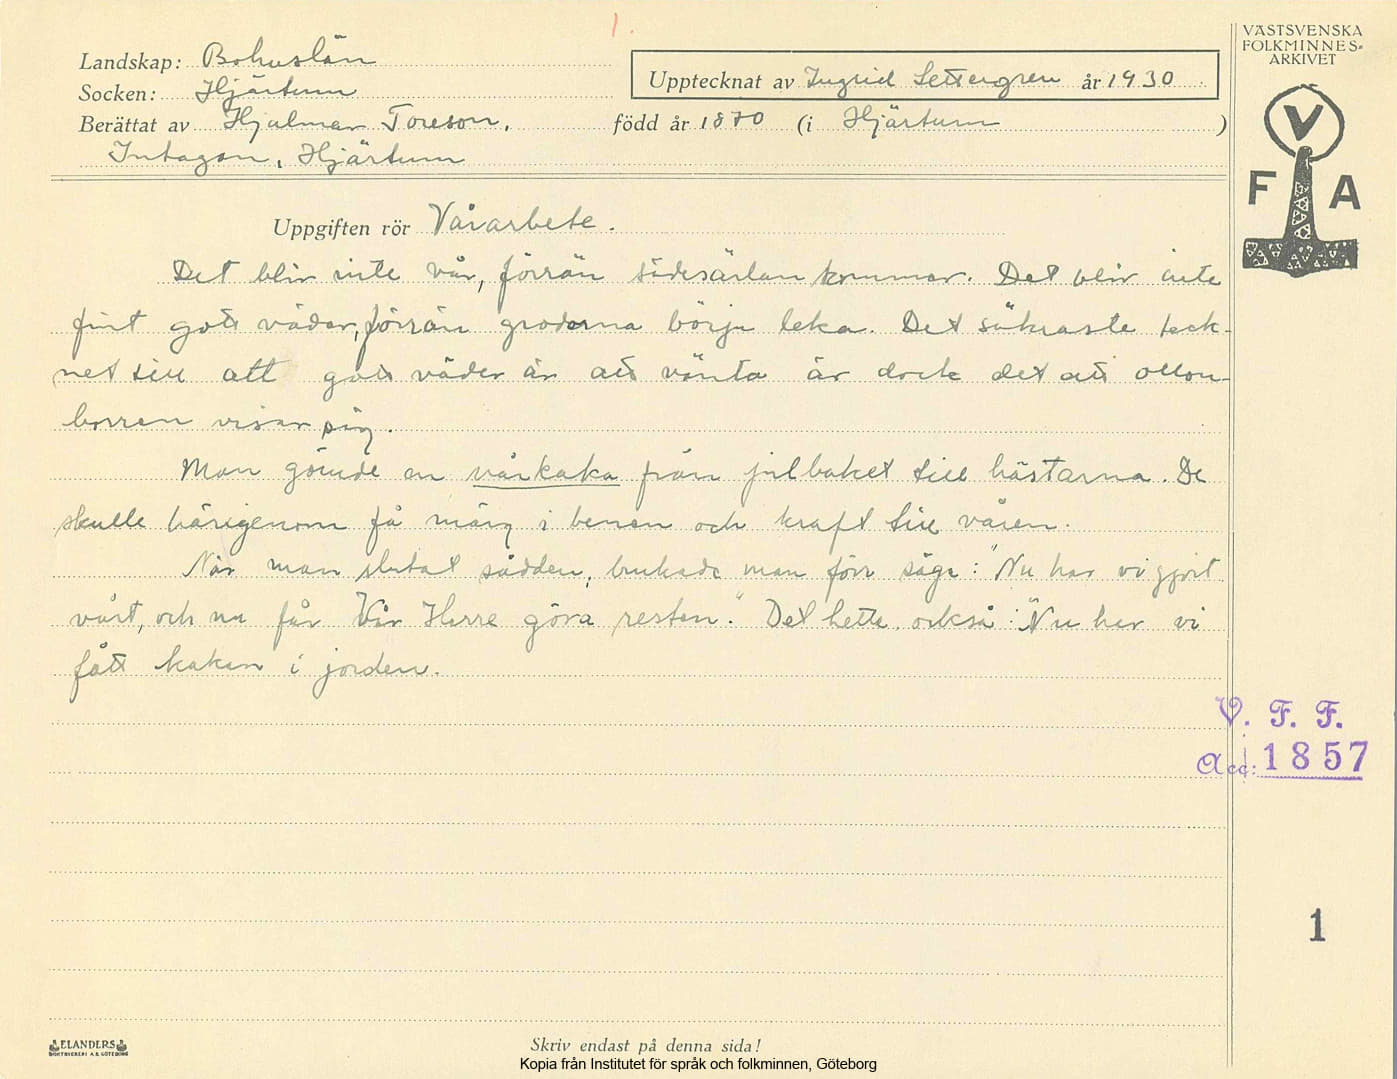 1.
VÄSTSVENSKA
FOLKMINNES-
ARKIVET
Landskap: Bohuslän
Upptecknat av Ingrid Settergren år 1930
Socken: Hjärtum
Berättat av Hjalmar Toreson, född år 1870 (i Hjärtum)
Intagan, Hjärtum
V
F A
Uppgiften rör Vårarbete.
Det blir inte vår, förrän sädesärlan kommer. Det blir inte
fint gott väder, förrän grodorna börja leka. Det säkraste teck-
net till att gott väder är att vänta är dock det att ollon-
borren visar sig.
Man gömde en vårkaka från julbaket till hästarna. De
skulle härigenom få märg i benen och kraft till våren.
När man slutat sådden, brukade man förr säga: "Nu har vi gjort
vårt, och nu får Vår Herre göra resten." Det hette också: "Nu har vi
fått kakan i jorden.
V. F. F.
Acc: 1857
1
ELANDERS
BOKTRYCKERI A.B. GÖTEBORG
Skriv endast på denna sida!
Kopia från Institutet för språk och folkminnen, Göteborg